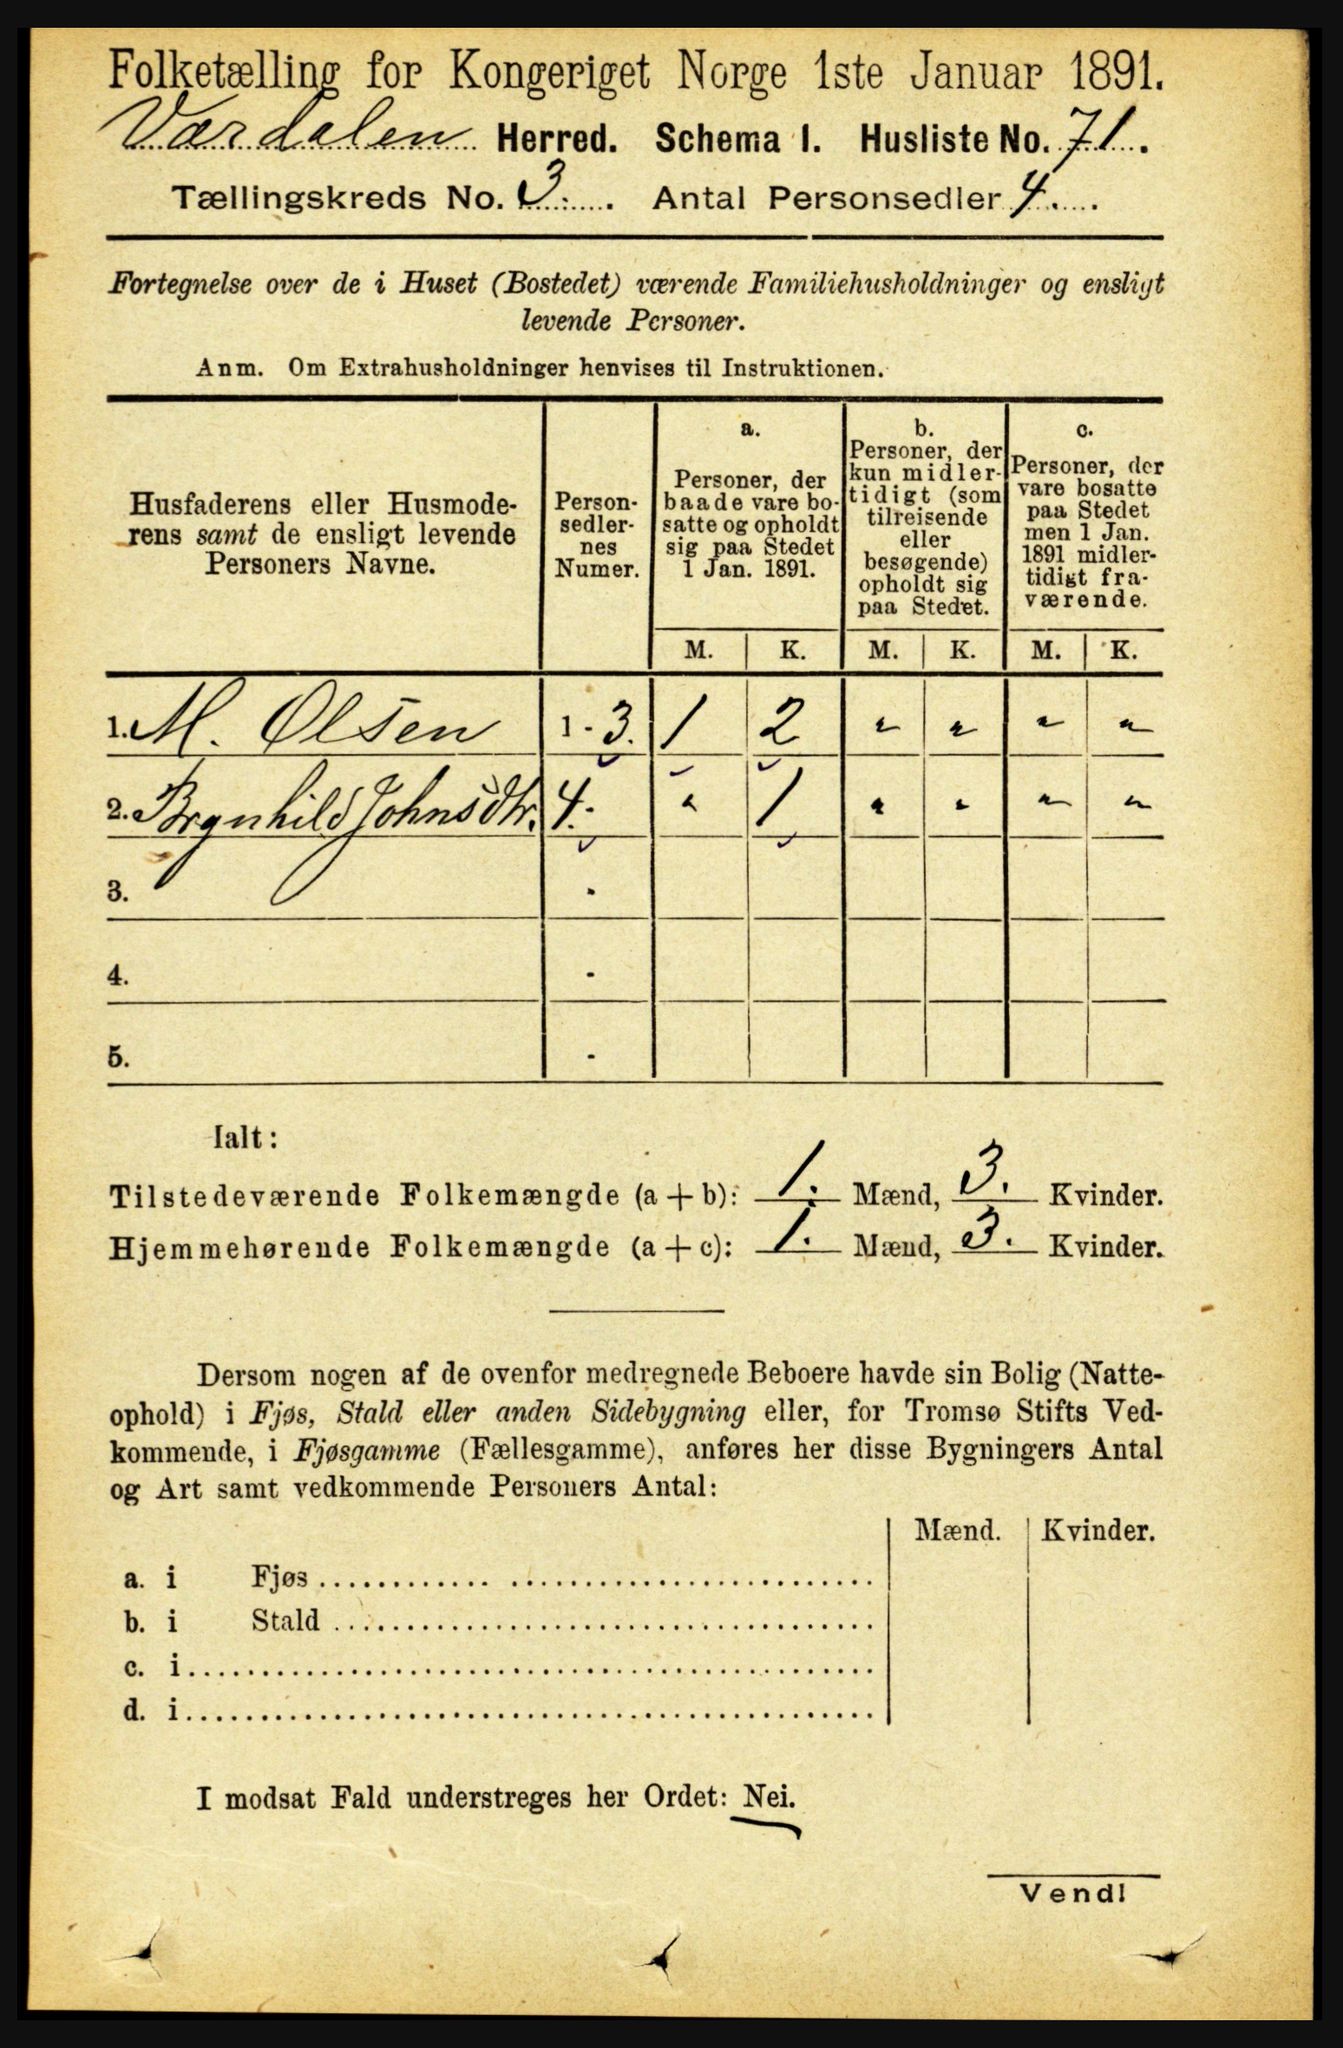 Folketælling for Kongeriget Norge 1ste Januar 1891.
Værdalen Herred. Schema I. Husliste No. 71.
Tællingskreds No. 3. Antal Personsedler 4.
Fortegnelse over de i Huset (Bostedet) værende Familiehusholdninger og ensligt
levende Personer.
Anm. Om Extrahusholdninger henvises til Instruktionen.
Husfaderens eller Husmode-
rens samt de ensligt levende
Personers Navne.
Person-
sedler-
nes
Numer.
a.
Personer, der
baade vare bo-
satte og opholdt
sig paa Stedet
1 Jan. 1891.
b.
Personer, der
kun midler-
tidigt (som
tilreisende
eller
besøgende)
opholdt sig
paa Stedet.
c.
Personer, der
vare bosatte
paa Stedet
men 1 Jan.
1891 midler-
tidigt fra-
værende.
M. K. M. K. M. K.
1. M. Olsen 1 - 3. 1 2 " " " "
2. Brynhild Johnsdtr. 4. - " 1 " " " "
3. -
4. -
5. -
Ialt:
Tilstedeværende Folkemængde (a + b): 1. Mænd, 3. Kvinder.
Hjemmehørende Folkemængde (a + c): 1. Mænd, 3. Kvinder.
Dersom nogen af de ovenfor medregnede Beboere havde sin Bolig (Natte-
ophold) i Fjøs, Stald eller anden Sidebygning eller, for Tromsø Stifts Ved-
kommende, i Fjøsgamme (Fællesgamme), anføres her disse Bygningers Antal
og Art samt vedkommende Personers Antal:
Mænd. Kvinder.
a. i Fjøs
b. i Stald
c. i
d. i
I modsat Fald understreges her Ordet: Nei.
Vend!